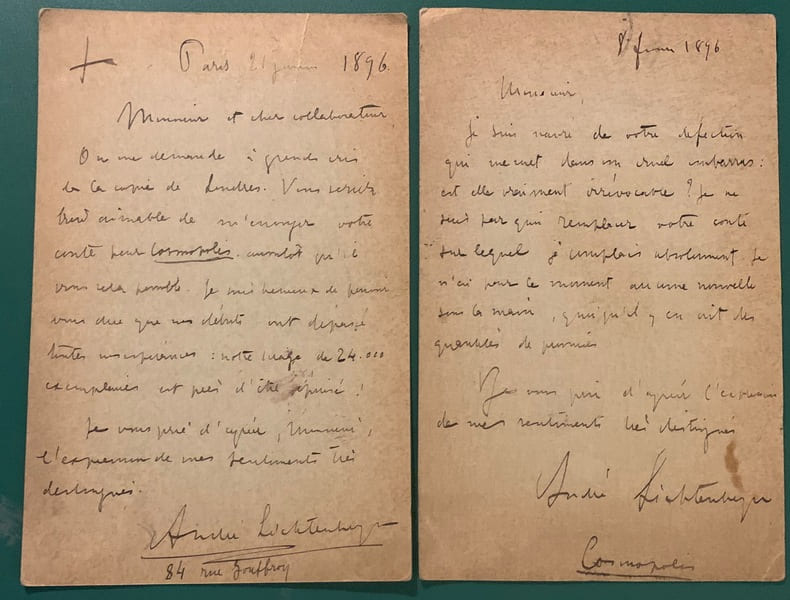 Paris 21 janvier 1896.
Monsieur et cher collaborateur,
On me demande à grands cris
de la copie de Londres. Vous seriez
bien aimable de m'envoyer votre
conte pour Cosmopolis aussitôt qu'il
vous sera possible. Je suis heureux de pouvoir
vous dire que nos débuts ont dépassé
toutes nos espérances : notre tirage de 24.000
exemplaires est près d'être épuisé !
Je vous prie d'agréer, Monsieur,
l'expression de mes sentiments très
distingués.
André Lichtenberger
84 rue Jouffroy
1896
Monsieur,
Je suis navré de votre défection
qui me met dans un cruel embarras :
est elle vraiment irrévocable ? Je ne
sais par qui remplacer votre conte
sur lequel je comptais absolument. Je
n'ai pour le moment aucune nouvelle
sous la main, quoiqu'il y en ait des
quantités de promises
Je vous prie d'agréer l'expression
de mes sentiments très distingués
André Lichtenberger
Cosmopolis